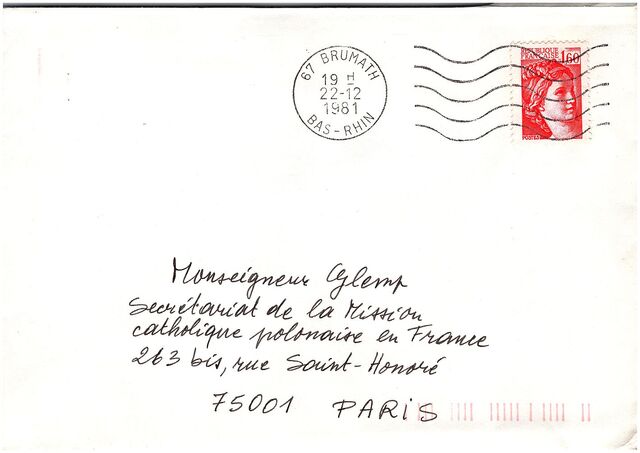 67 BRUMATH
19 H
22-12
1981
BAS-RHIN
REPUBLIQUE
FRANCAISE
1,60
POSTES
Monseigneur Glemp
Secrétariat de la Mission
catholique polonaise en France
263 bis, rue Saint-Honoré
75001 PARIS